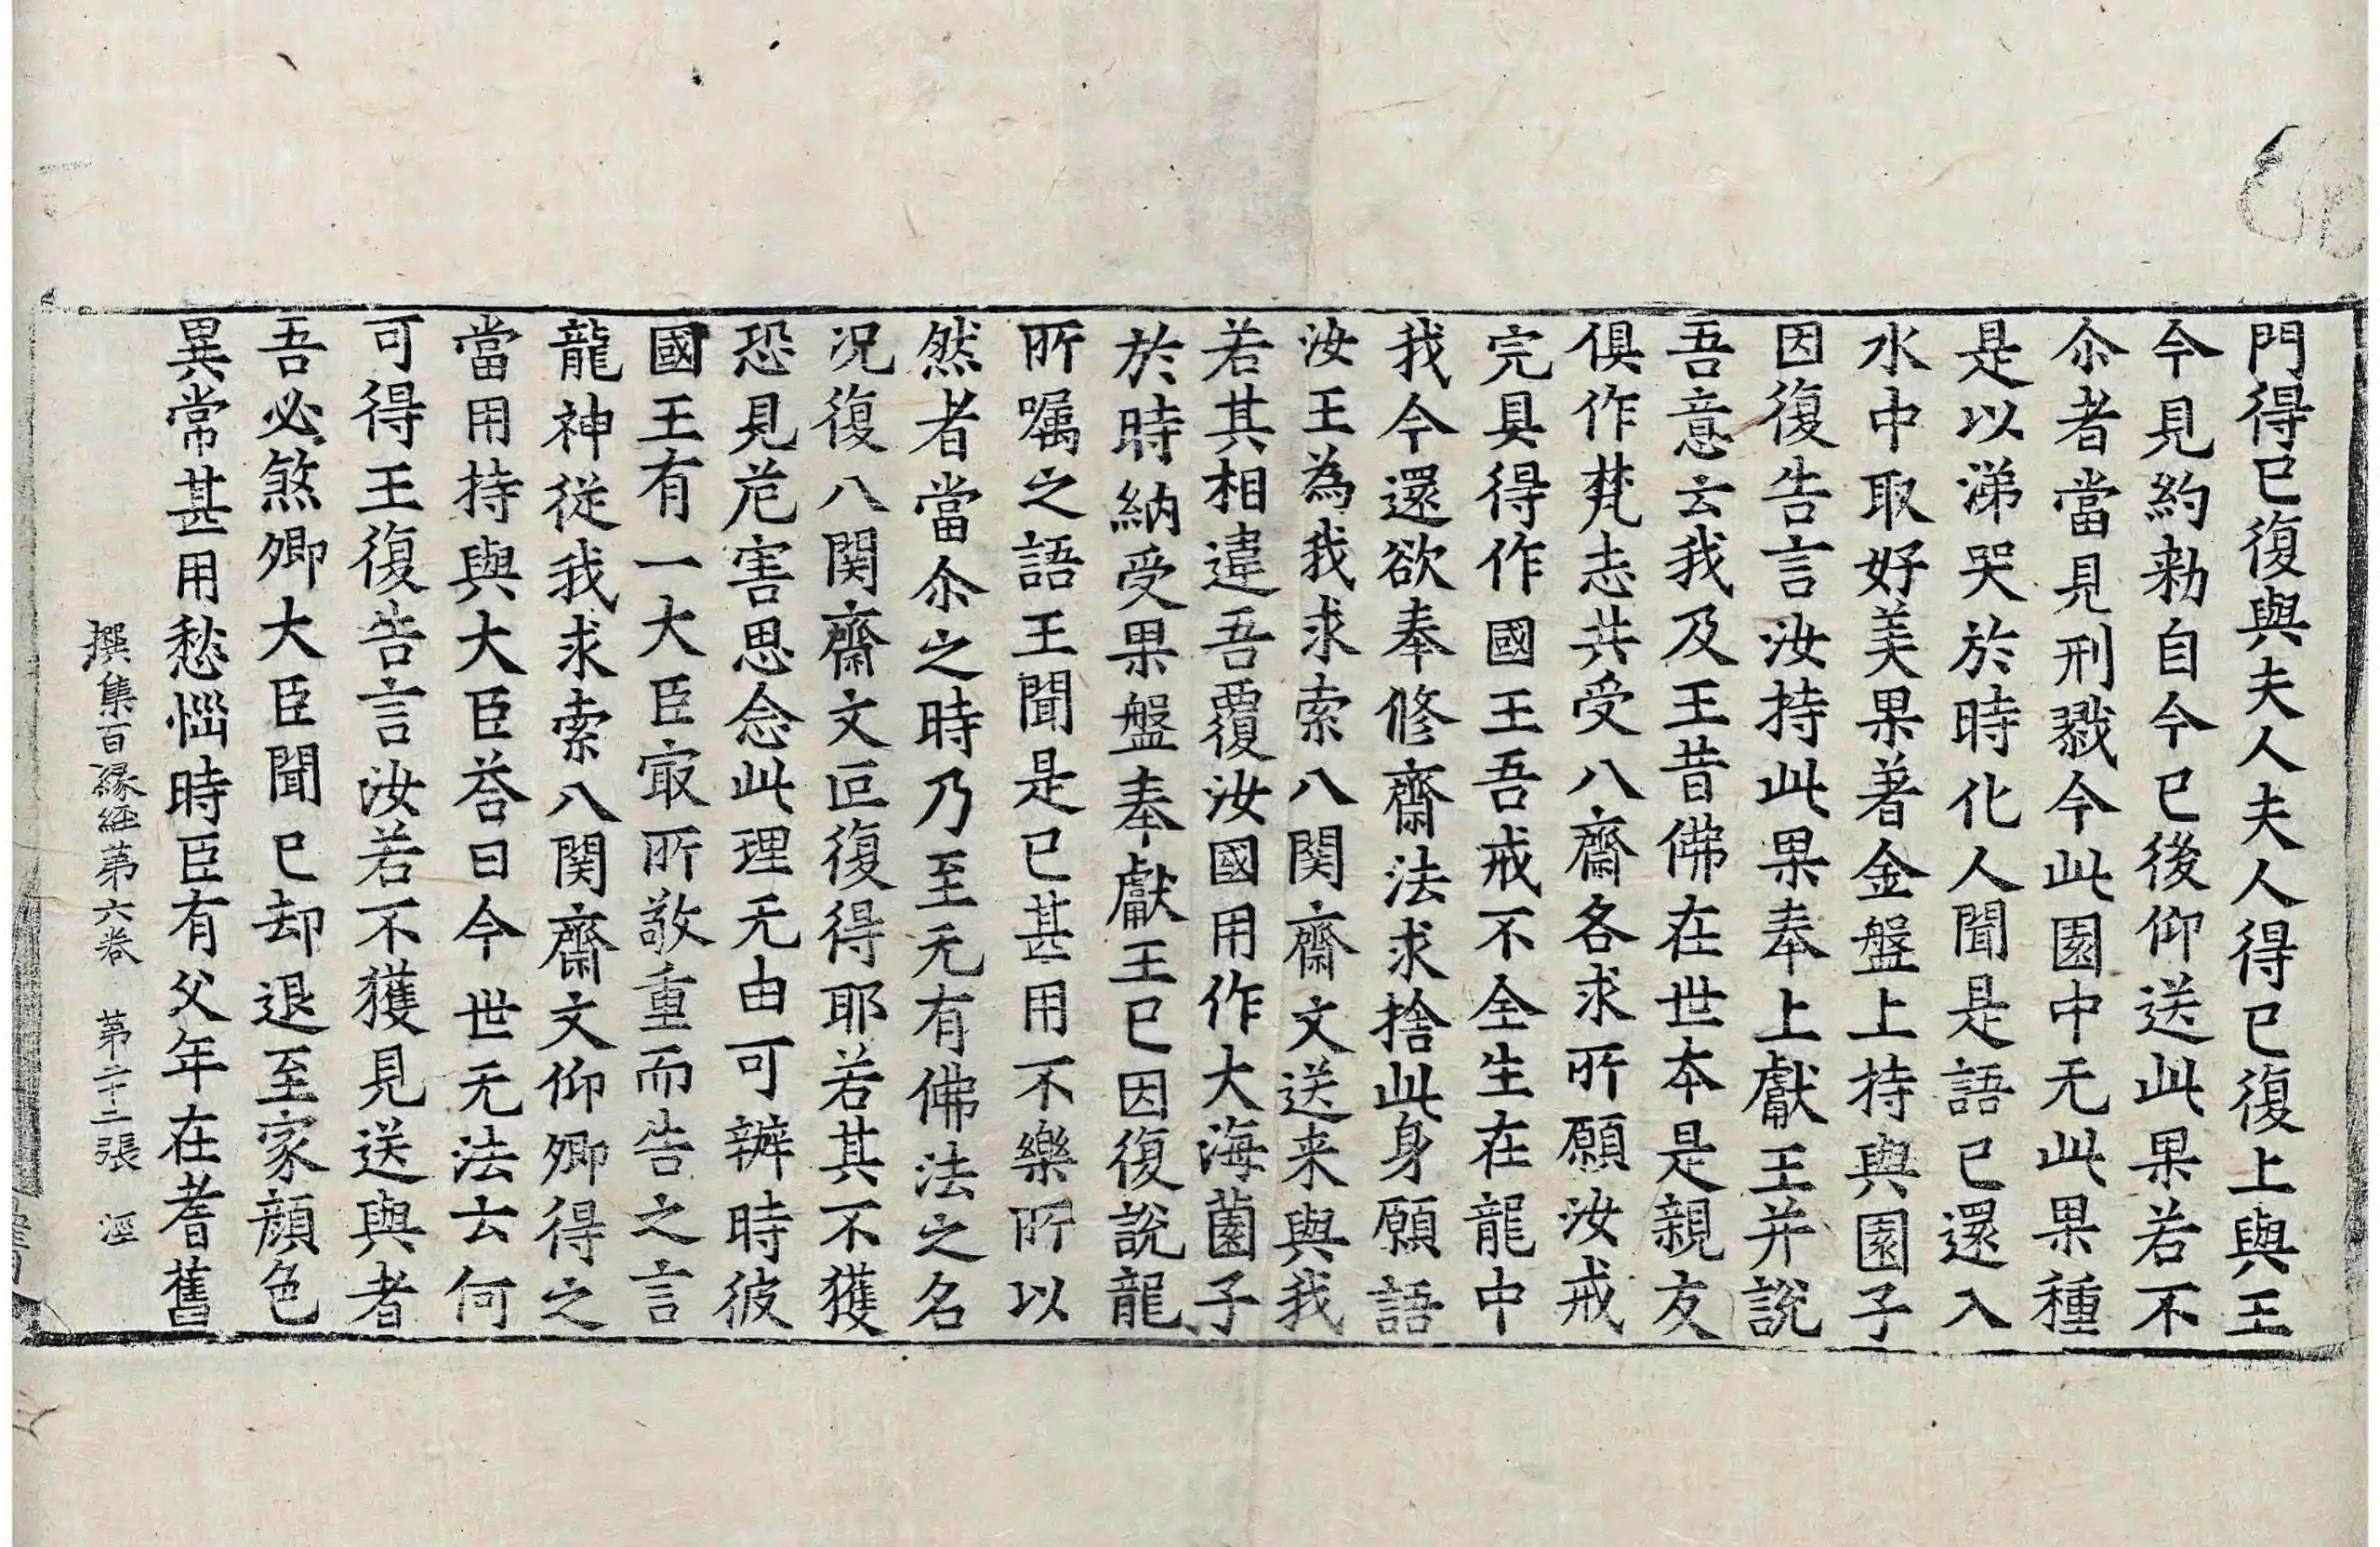 門得已復與夫人夫人得已復上與王
今見約勑自今已後仰送此果若不
尒者當見刑戮今此園中无此果種
是以涕哭於時化人聞是語已還入
水中取好美果著金盤上持與園子
因復告言汝持此果奉上獻王并說
吾意云我及王昔佛在世本是親友
俱作梵志共受八齋各求所願汝戒
完具得作國王吾戒不全生在龍中
我今還欲奉修齋法求捨此身願語
汝王為我求索八関齋文送来與我
若其相違吾覆汝國用作大海薗子
於時納受果盤奉獻王已因復說龍
所嘱之語王聞是已甚用不樂所以
然者當尒之時乃至无有佛法之名
况復八関齋文叵復得耶若其不獲
恐見危害思念此理无由可辦時彼
國王有一大臣㝡所敬重而告之言
龍神從我求索八関齋文仰卿得之
當用持與大臣荅曰今世无法云何
可得王復告言汝若不獲見送與者
吾必煞卿大臣聞已却退至家顔色
異常甚用愁惱時臣有父年在耆舊
撰集百緣経第六卷 第二十二張 涇